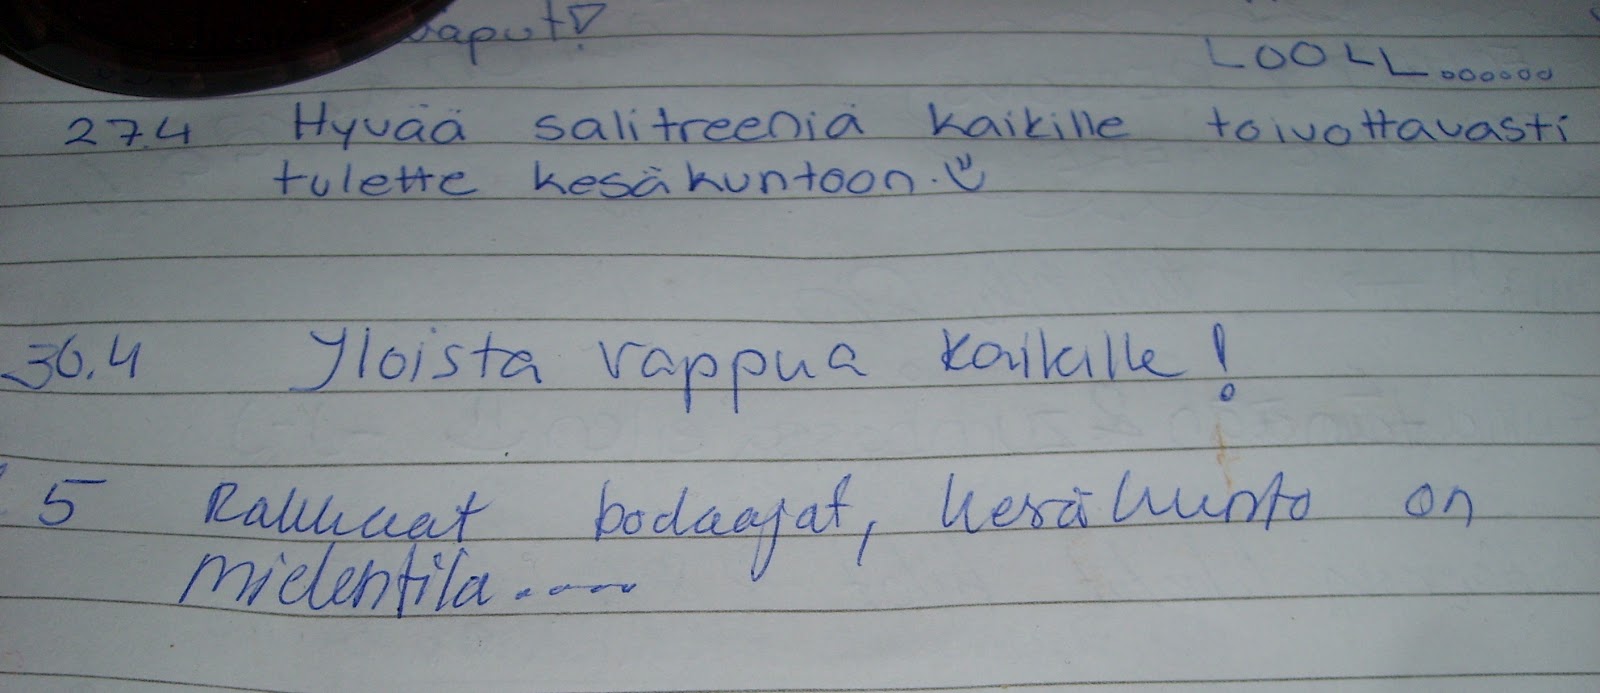 LOOLL.oooooo
27.4 Hyvää salitreeniä kaikille toivottavasti
tulette kesäkuntoon.
30.4 Yloista vappua kaikille!
5 Rakkaat bodaajat, kesäkunto on
mielentila....